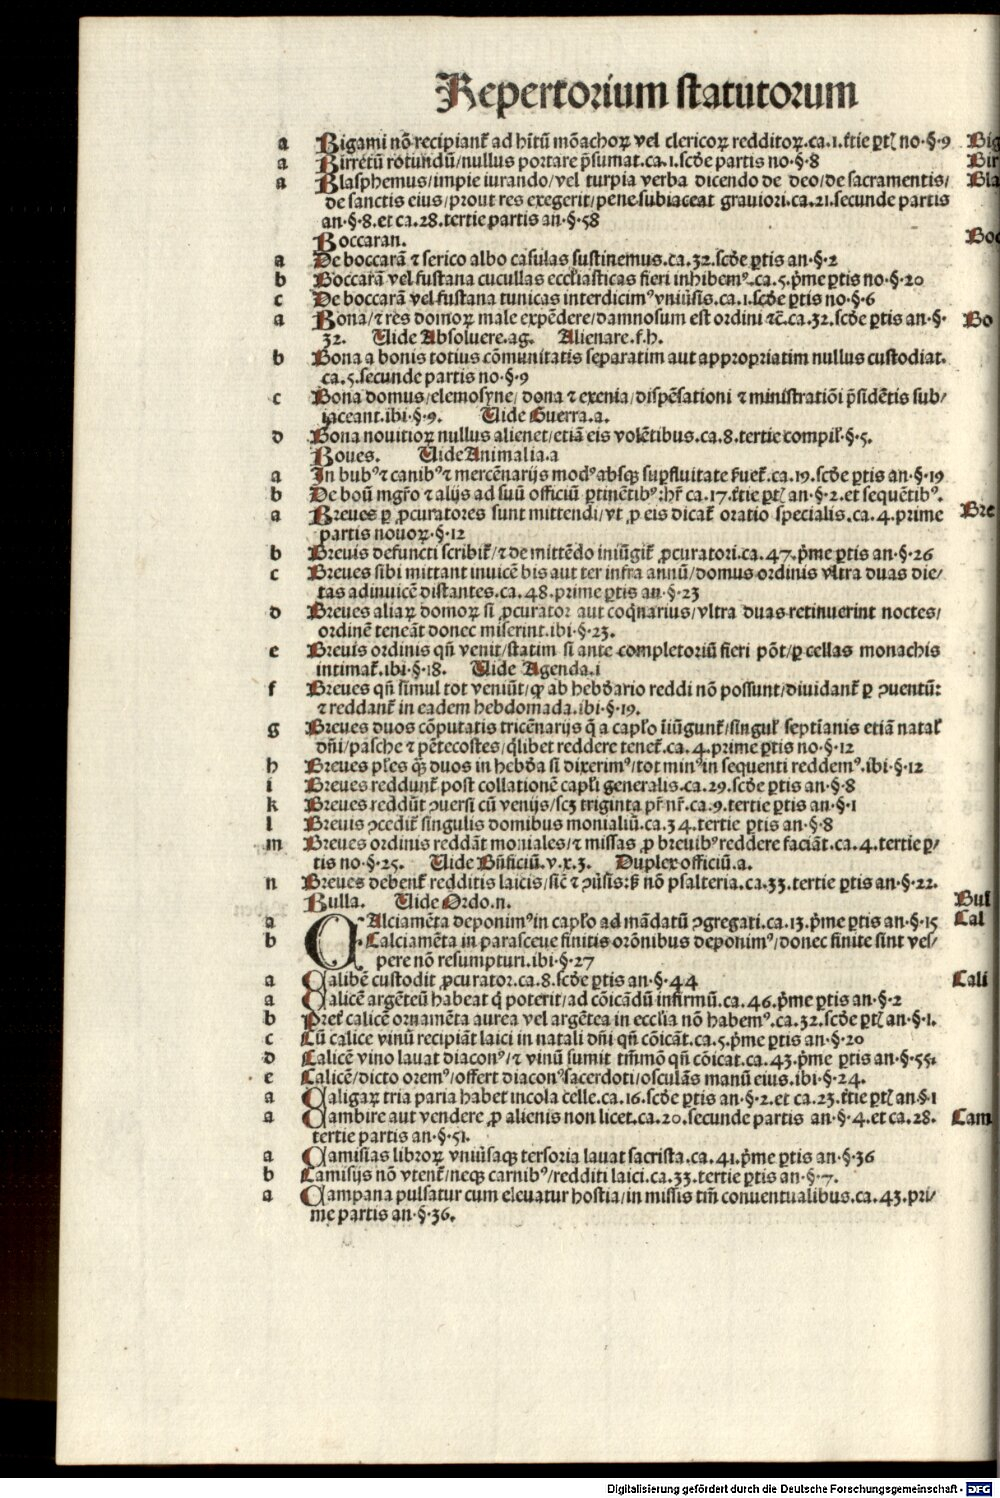 Repertorium statutorum
a Bigami nō recipiant᷑ ad hītū mōachoꝝ vel clericoꝝ redditoꝝ.ca.1.t̄tie ꝑtꝭ no.§.9 Big
a Birretū rotundū/nullus portare p̄sumat.ca.1.scd̄e partis no.§.8 Bir
a Blasphemus/impie iurando/vel turpia verba dicendo de deo/de sacramentis/ Bla
de sanctis eius/prout res exegerit/pene subiaceat grauiori.ca.21.secunde partis
an.§.8.et ca.28.tertie partis an.§.58
Boccaran. Boc
a De boccarā ⁊ serico albo casulas sustinemus.ca.32.scd̄e ꝑtis an.§.2
b Boccarā vel fustana cucullas eccl̄iasticas fieri inhibemꝰ.ca.5.p̄me ꝑtis no.§.20
c De boccarā vel fustana tunicas interdicimꝰ vniūsis.ca.1.scd̄e ꝑtis no.§.6
a Bona/⁊ res domoꝝ male expēdere/damnosum est ordini ⁊c̄.ca.32.scd̄e ꝑtis an.§. Bo
32. Uide Absoluere.ag. Alienare.f.h.
b Bona a bonis totius cōmunitatis separatim aut appropriatim nullus custodiat.
ca.5.secunde partis no.§.9
c Bona domus/elemosyne/ dona ⁊ exenia/dispēsationi ⁊ ministratiōi p̄sidētis sub/
iaceant.ibi.§.9. Uide Guerra.a.
d Bona nouitioꝝ nullus alienet/etiā eis volētibus.ca.8.tertie compil̄.§.5.
Boues. Uide Animalia.a
a In bubꝰ ⁊ canibꝰ ⁊ mercēnarijs modꝰ absqꝫ suꝑfluitate ẜuet᷑.ca.19.scd̄e ꝑtis an.§.19
b De boū mgr̄o ⁊ alijs ad suū officiū ꝑtinētibꝰ:hr̄ ca.17.t̄tie ꝑtꝭ an.§.2.et sequētibꝰ.
a Breues ꝑ ꝓcuratores sunt mittendi/vt ꝓ eis dicat᷑ oratio specialis.ca.4.prime Bre
partis nouoꝝ.§.12
b Breuis defuncti scribit᷑/⁊ de mittēdo iniūgit᷑ ꝓcuratori.ca.47.p̄me ꝑtis an.§.26
c Breues sibi mittant inuicē bis aut ter infra annū/domus ordinis vltra duas die/
tas adinuicē distantes.ca.48.prime ꝑtis an.§.23
d Breues aliaꝝ domoꝝ si ꝓcurator aut coq̄narius/vltra duas retinuerint noctes/
ordinē teneāt donec miserint.ibi.§.23.
e Breuis ordinis qn̄ venit/statim si ante completoriū fieri pōt/ꝑ cellas monachis
intimat᷑.ibi.§.18. Uide Agenda.i
f Breues qn̄ simul tot veniūt/ꝙ ab hebd̄ario reddi nō possunt/diuidant᷑ ꝑ ꝯuentū:
⁊ reddant᷑ in eadem hebdomada.ibi.§.19.
g Breues duos cōputatis tricēnarijs q̄ a capl̄o īiūgunt᷑/singul̄ septīanis etiā natal̄
dn̄i/pasche ⁊ pētecostes/q̄libet reddere tenet᷑.ca.4.prime ꝑtis no.§.12
h Breues pl̄es qꝫ duos in hebd̄a si dixerimꝰ/tot minꝰ in sequenti reddemꝰ.ibi.§.12
i Breues reddunt᷑ post collationē capl̄i generalis.ca.29.scd̄e ꝑtis an.§.8
k Breues reddūt ꝯuersi cū venijs/scꝫ triginta pr̄ nr̄.ca.9.tertie ꝑtis an.§.1
l Breuis ꝯcedit᷑ singulis domibus monialiū.ca.34.tertie ꝑtis an.§.8
m Breues ordinis reddāt moniales/⁊ missas ꝓ breuibꝰ reddere faciāt.ca.4.tertie ꝑ/
tis no.§.25. Uide Bn̄ficiū.v.x.3. Duplex officiū.a.
n Breues debent᷑ redditis laicis/sic̄ ⁊ ꝯūsis:ꝫ nō psalteria.ca.33.tertie ꝑtis an.§.22.
Bulla. Uide Ordo.n. Bul
a CAlciamēta deponimꝰ in capl̄o ad mādatū ꝯgregati.ca.13.p̄me ꝑtis an.§.15 Cal
b Calciamēta in parasceue finitis orōnibus deponimꝰ/donec finite sint ves/
pere nō resumpturi.ibi.§.27
a Calibē custodit ꝓcurator.ca.8.scd̄e ꝑtis an.§.44 Cali
a Calicē argēteū habeat q̄ poterit/ad cōicādū infirmū.ca.46.p̄me ꝑtis an.§.2
b Pret̄ calicē ornamēta aurea vel argētea in eccl̄ia nō habemꝰ.ca.32.scd̄e ꝑtꝭ an.§.1.
c Cū calice vinū recipiāt laici in natali dn̄i qn̄ cōicāt.ca.5.p̄me ꝑtis an.§.20
d Calicē vino lauat diaconꝰ/⁊ vinū sumit tm̄mō qn̄ cōicat.ca.43.p̄me ꝑtis an.§.55.
e Calicē/dicto oremꝰ/offert diaconꝰ sacerdoti/osculās manū eius.ibi.§.24.
a Caligaꝝ tria paria habet incola celle.ca.16.scd̄e ꝑtis an.§.2.et ca.23.t̄tie ꝑtꝭ an.§.1
a Cambire aut vendere ꝓ alienis non licet.ca.20.secunde partis an.§.4.et ca.28. Cam
tertie partis an.§.51.
a Camisias libroꝝ vniūsaqꝫ tersoria lauat sacrista.ca.41.p̄me ꝑtis an.§.36
b Camisijs nō vtent᷑/neqꝫ carnibꝰ/redditi laici.ca.33.tertie ꝑtis an.§.7.
a Campana pulsatur cum eleuatur hostia/in missis tm̄ conuentualibus.ca.43.pri/
me partis an.§.36.
Digitalisierung gefördert durch die Deutsche Forschungsgemeinschaft - DFG